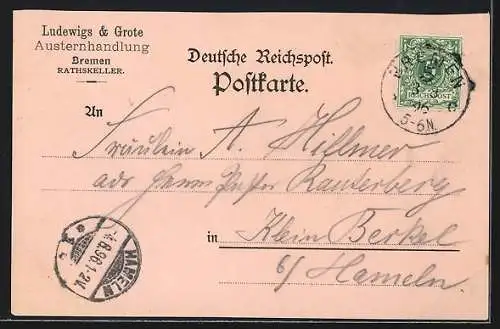 Ludewigs & Grote
Austernhandlung
Bremen
RATHSKELLER.
Deutsche Reichspost.
Postkarte.
BREMEN
5
REICHSPOST
96
5-6N.
An
Fräulein A. Hillmer
adr Herrn Pastor Rauterberg
in Klein Berkel
b/ Hameln.
HAMELN
4.8.96.1-2N.